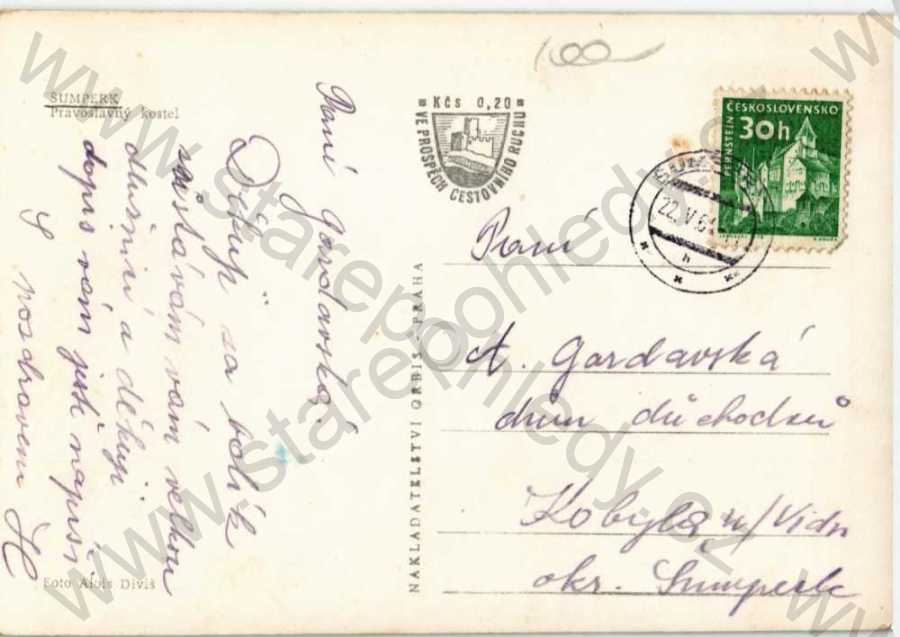 ŠUMPERK
Pravoslavný kostel
Paní Gardavská!
Děkuji za balík
zůstávám vám velkou
dlužnicí a děkuji
dopis vám ještě napíši
S pozdravem H
Foto Alois Diviš
NAKLADATELSTVÍ ORBIS - PRAHA
Kčs 0,20
VE PROSPĚCH CESTOVNÍHO RUCHU
100
ČESKOSLOVENSKO
30h
PERNŠTEJN
22. V. 6
Paní
A. Gardavská
dům důchodců
Kobylá n/Vidn
okr. Šumperk
www.starepohledy.cz
www.starepohledy.cz